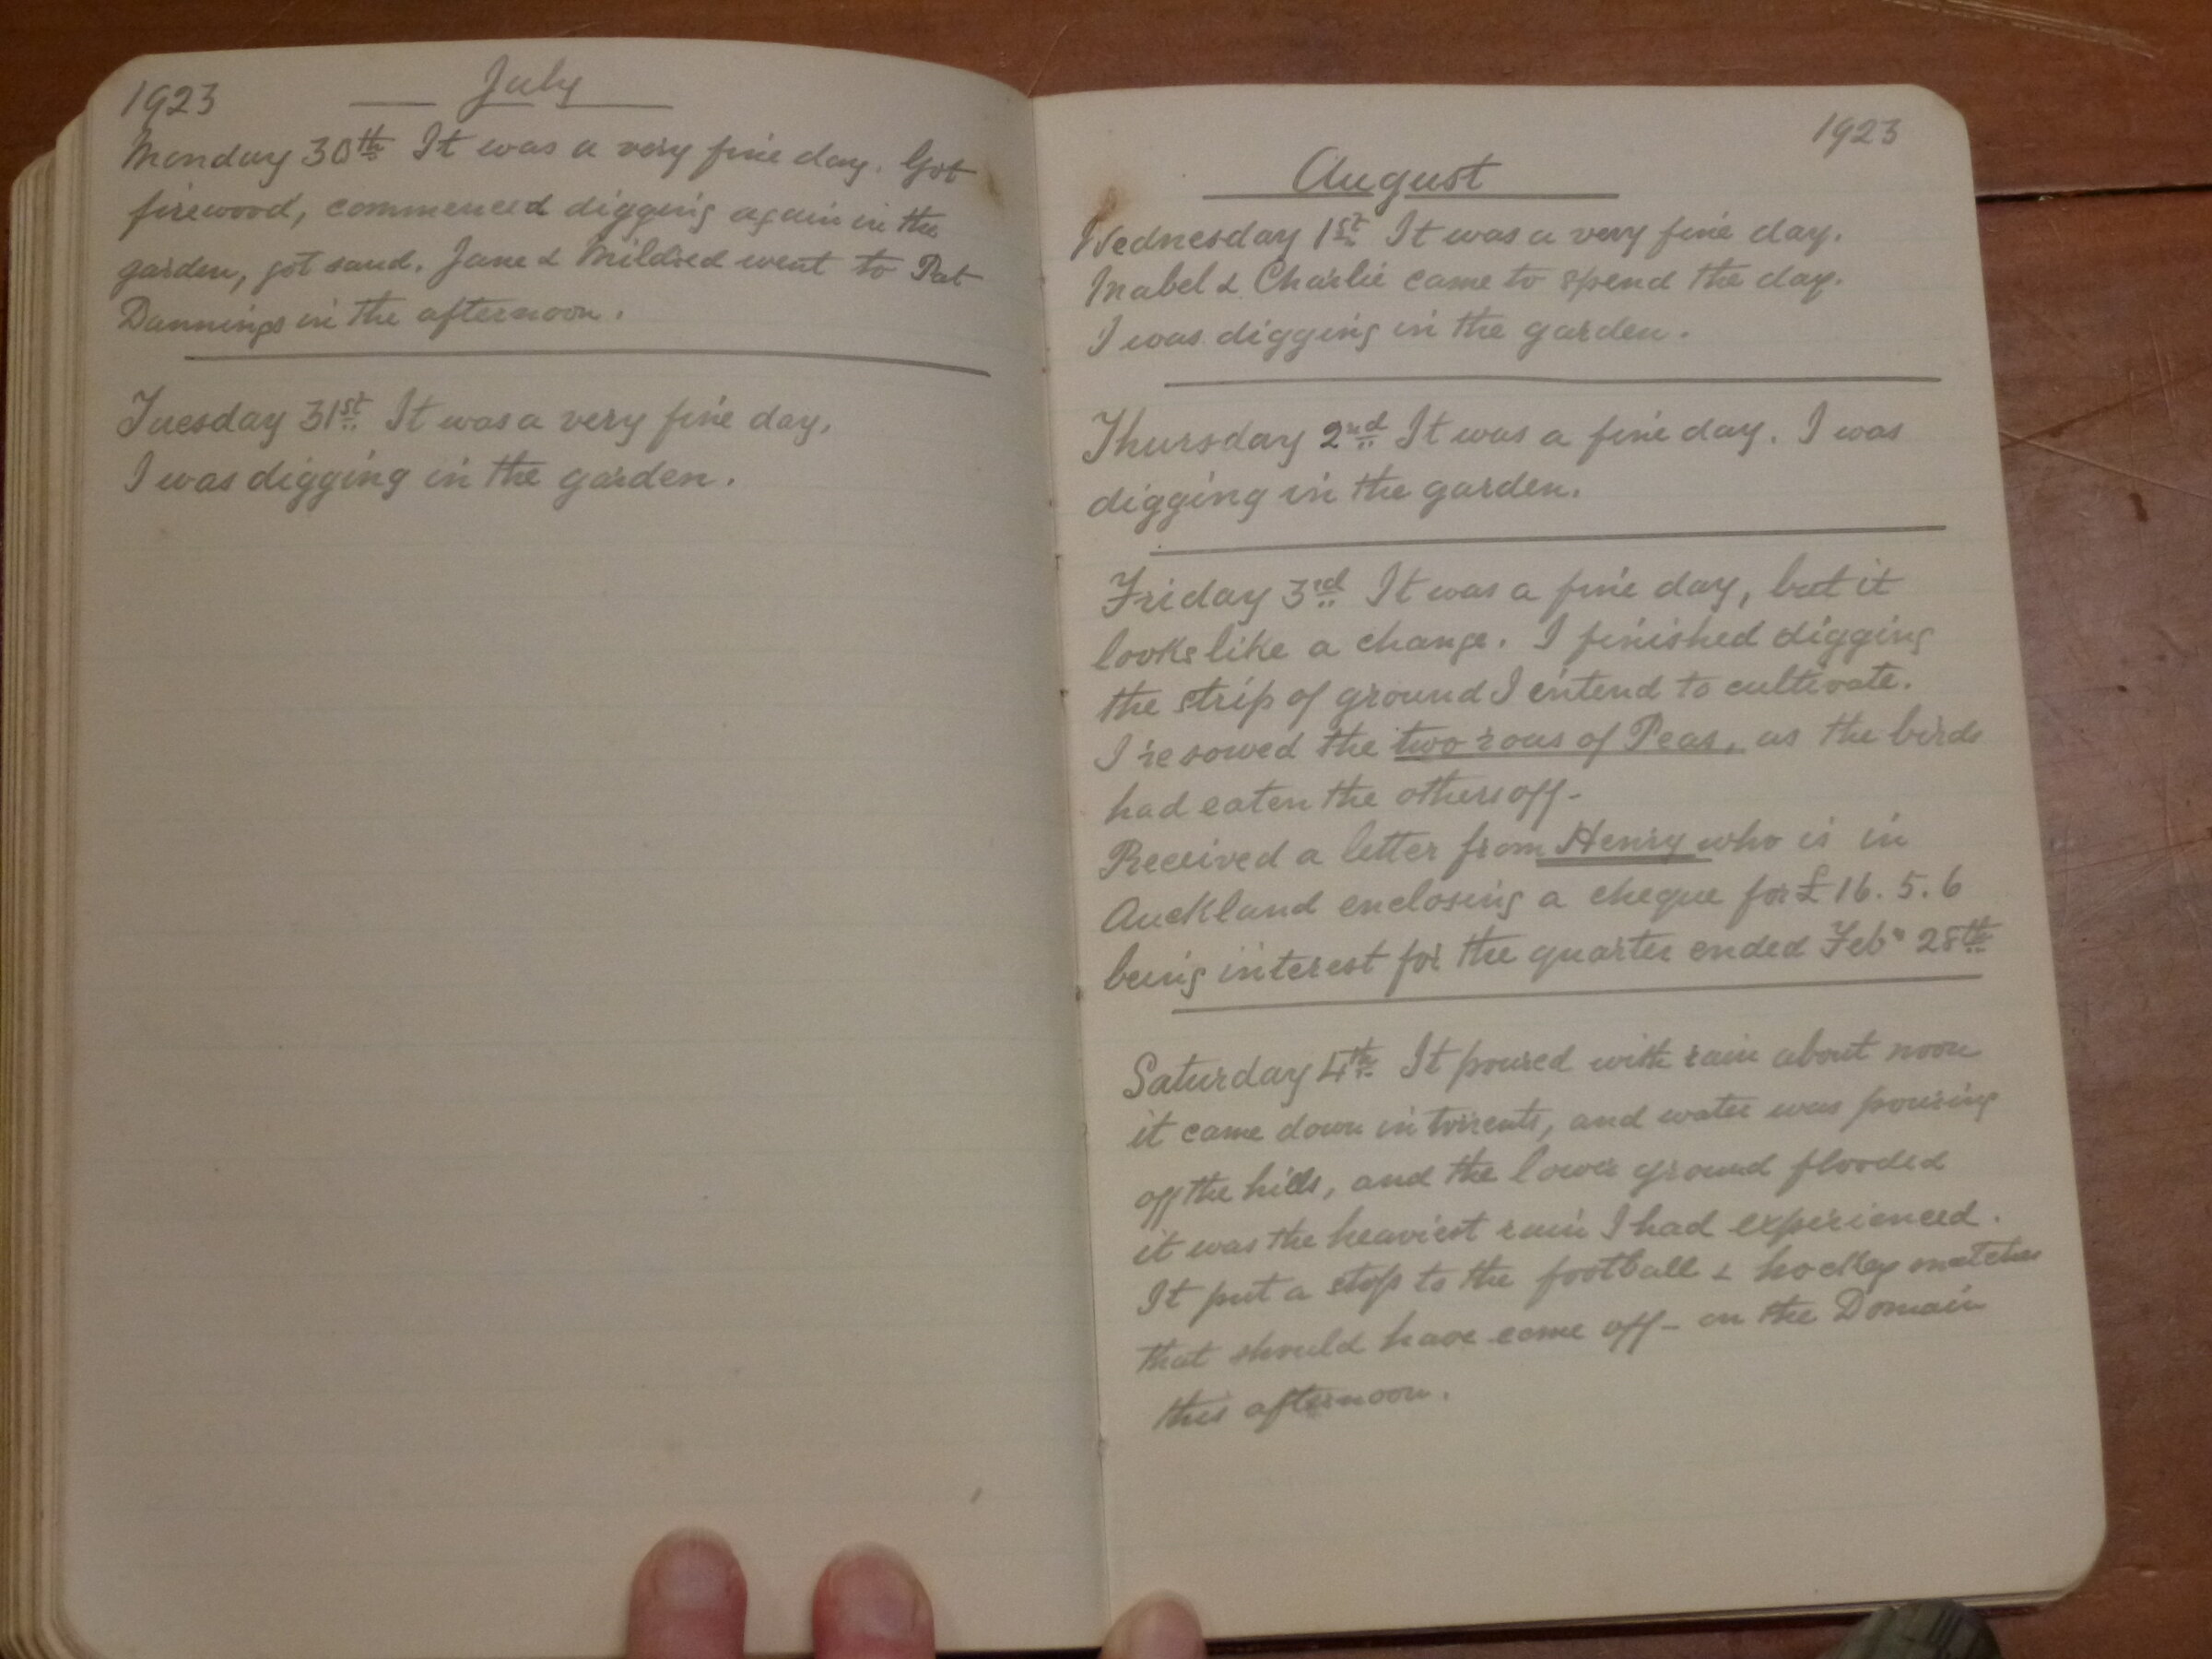 1923
July
Monday 30th It was a very fine day. Got
firewood, commenced digging again in the
garden, got sand. Jane & Mildred went to Pat
Dannings in the afternoon.
Tuesday 31st It was a very fine day,
I was digging in the garden.
1923
August
Wednesday 1st It was a very fine day.
Mabel & Charlie came to spend the day.
I was digging in the garden.
Thursday 2nd It was a fine day. I was
digging in the garden.
Friday 3rd It was a fine day, but it
looks like a change. I finished digging
the strip of ground I intend to cultivate.
I resowed the two rows of Peas, as the birds
had eaten the others off-
Received a letter from Henry who is in
Auckland enclosing a cheque for £16.5.6
being interest for the quarter ended Feby 28th
Saturday 4th It poured with rain about noon
it came down in torrents, and water was pouring
off the hills, and the lower ground flooded
it was the heaviest rain I had experienced.
It put a stop to the football & hockey matches
that should have come off- on the Domain
this afternoon.